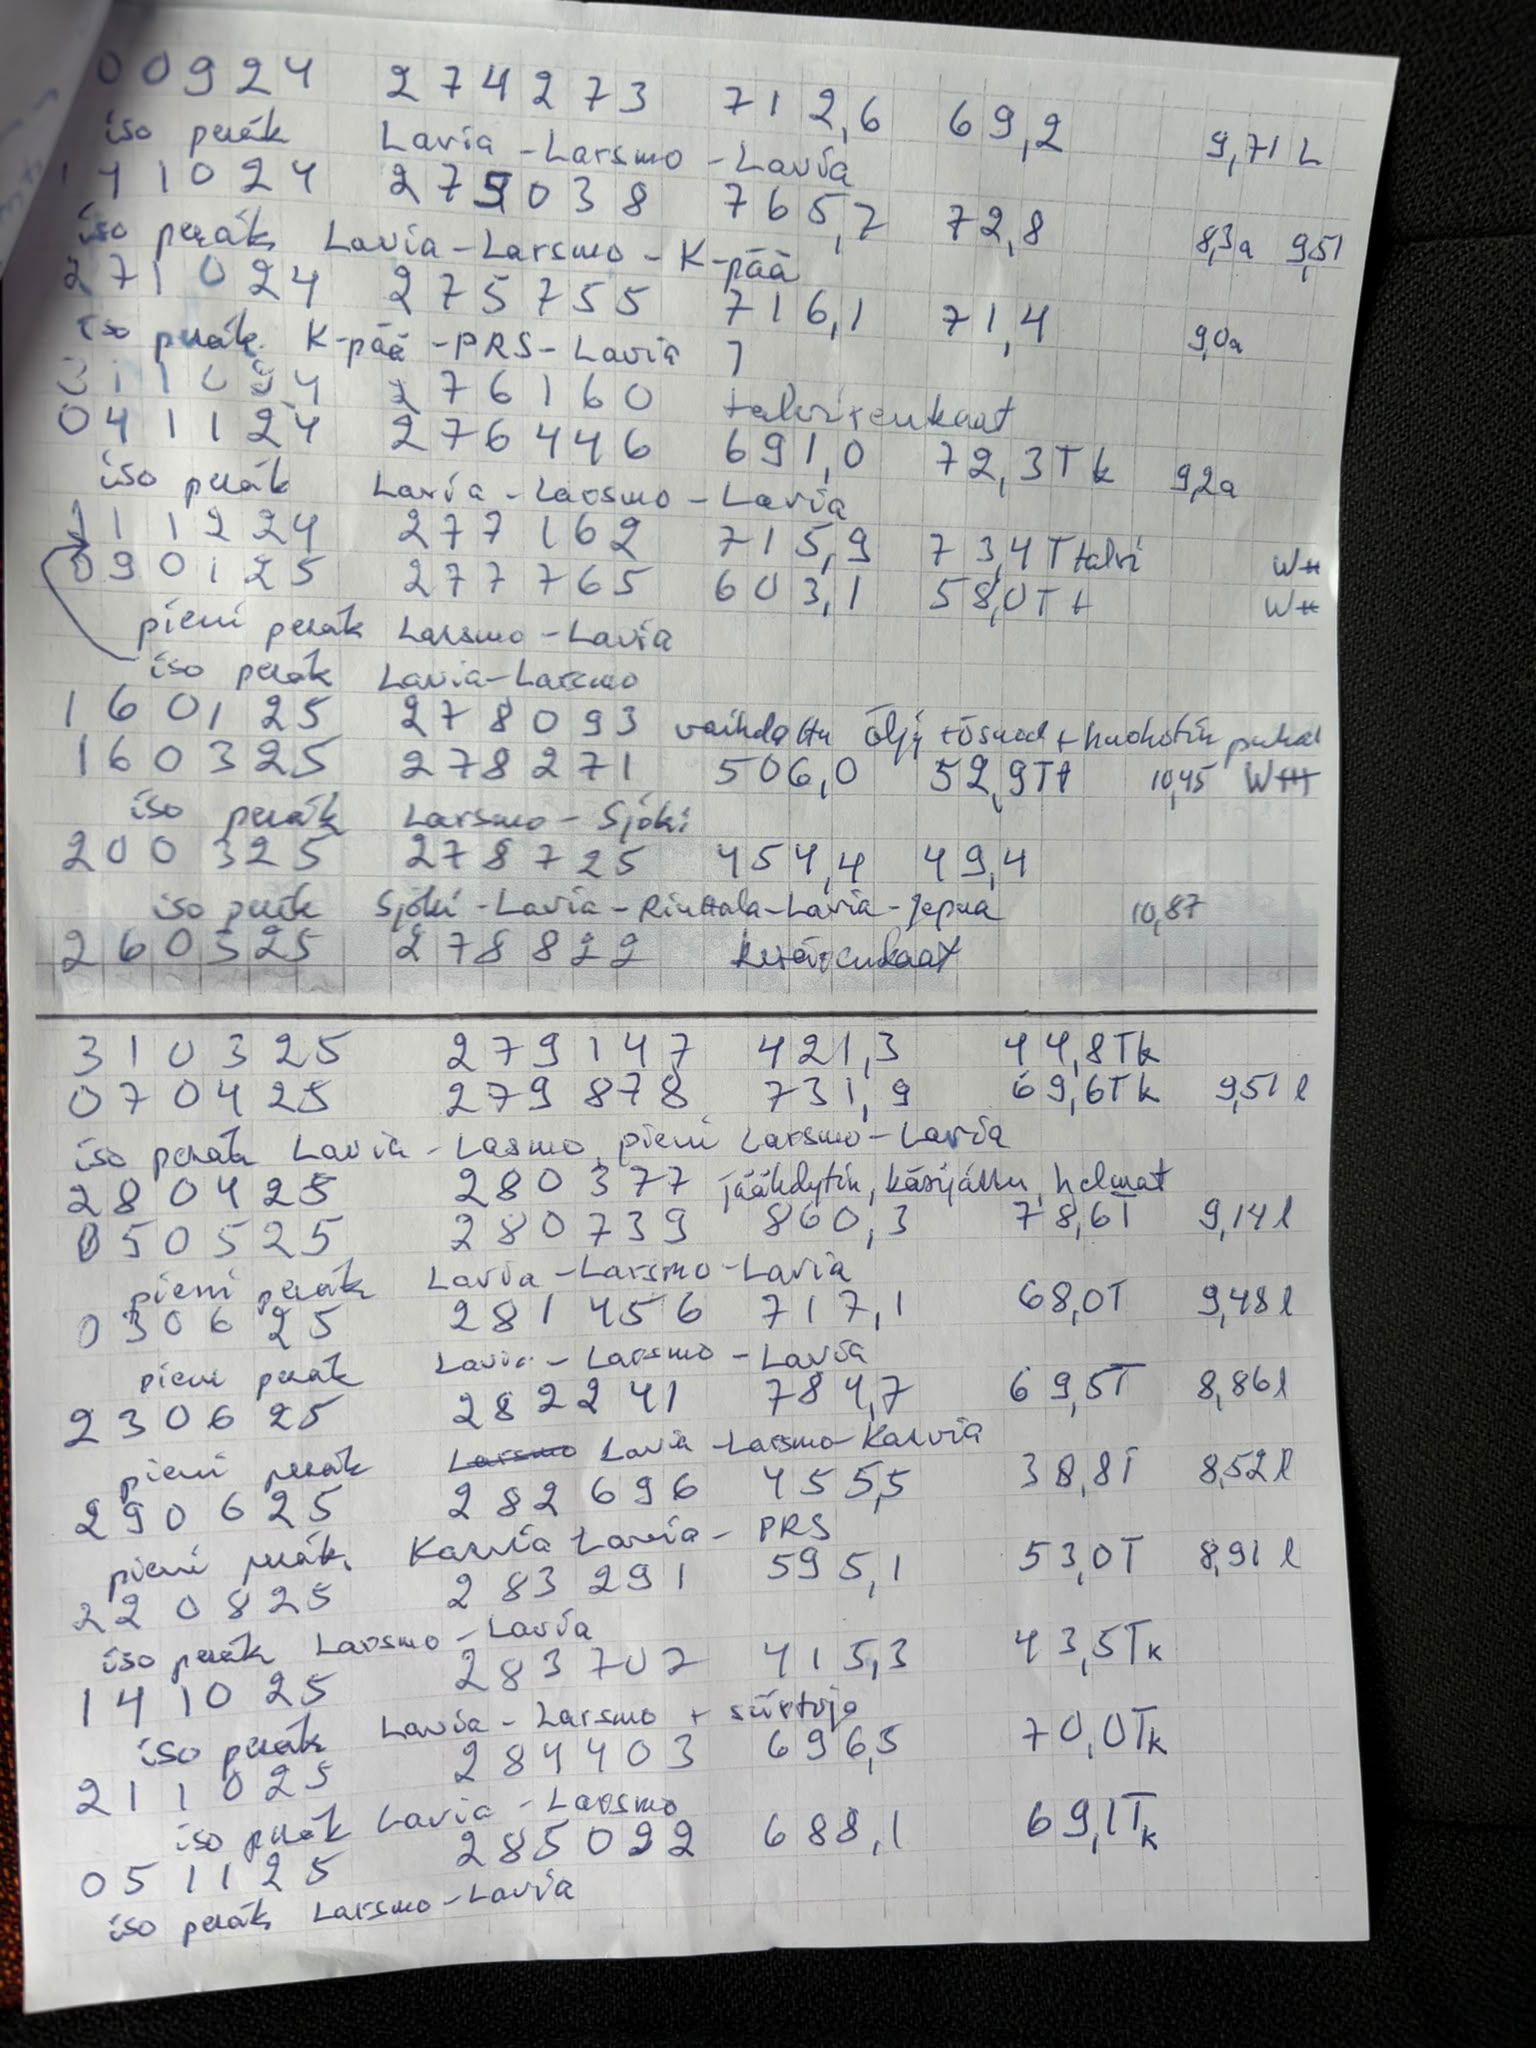 00924 274273 712,6 69,2 9,71 L
iso peräk Lavia-Larsmo-Lavia
141024 275038 765,7 72,8 8,3a 9,51
iso peräk Lavia-Larsmo-K-pää
271024 275755 716,1 71,4 9,0a
iso peräk K-pää-PRS-Lavia
276160 talvirenkaat
041124 276446 691,0 72,3Tk 9,2a
iso peräk Lavia-Larsmo-Lavia
211224 277162 715,9 73,4Ttalvi
090125 277765 603,1 58,0Tt
pieni peräk Larsmo-Lavia
iso peräk Lavia-Larsmo
160125 278093 vaihdettu öljy +
160325 278271 506,0 52,9Tt 10,45
iso peräk Larsmo-Sjöki
200325 278725 454,4 49,4
iso peräk Sjöki-Lavia-Rinttala-Lavia-Jepua 10,87
260325 278822 kesärenkaat
310325 279147 421,3 44,8Tk
070425 279878 731,9 69,6Tk 9,51 l
iso peräk Lavia-Lasmo, pieni Larsmo-Lavia
280425 280377 jäähdytin, käsijarru, helmat
050525 280739 860,3 78,6T 9,14l
pieni peräk Lavia-Larsmo-Lavia
030625 281456 717,1 68,0T 9,48l
pieni peräk Lavia-Larsmo-Lavia
230625 282241 784,7 69,5T 8,86l
pieni peräk Larsmo Lavia-Larsmo-Karvia
290625 282696 455,5 38,8T 8,52l
pieni peräk Karvia Lavia-PRS
220825 283291 595,1 53,0T 8,91 l
iso peräk Larsmo-Lavia
141025 283707 415,3 43,5Tk
iso peräk Lavia-Larsmo + siirtoja
211025 284403 696,5 70,0Tk
iso peräk Lavia-Larsmo
051125 285092 688,1 69,1Tk
iso peräk Larsmo-Lavia